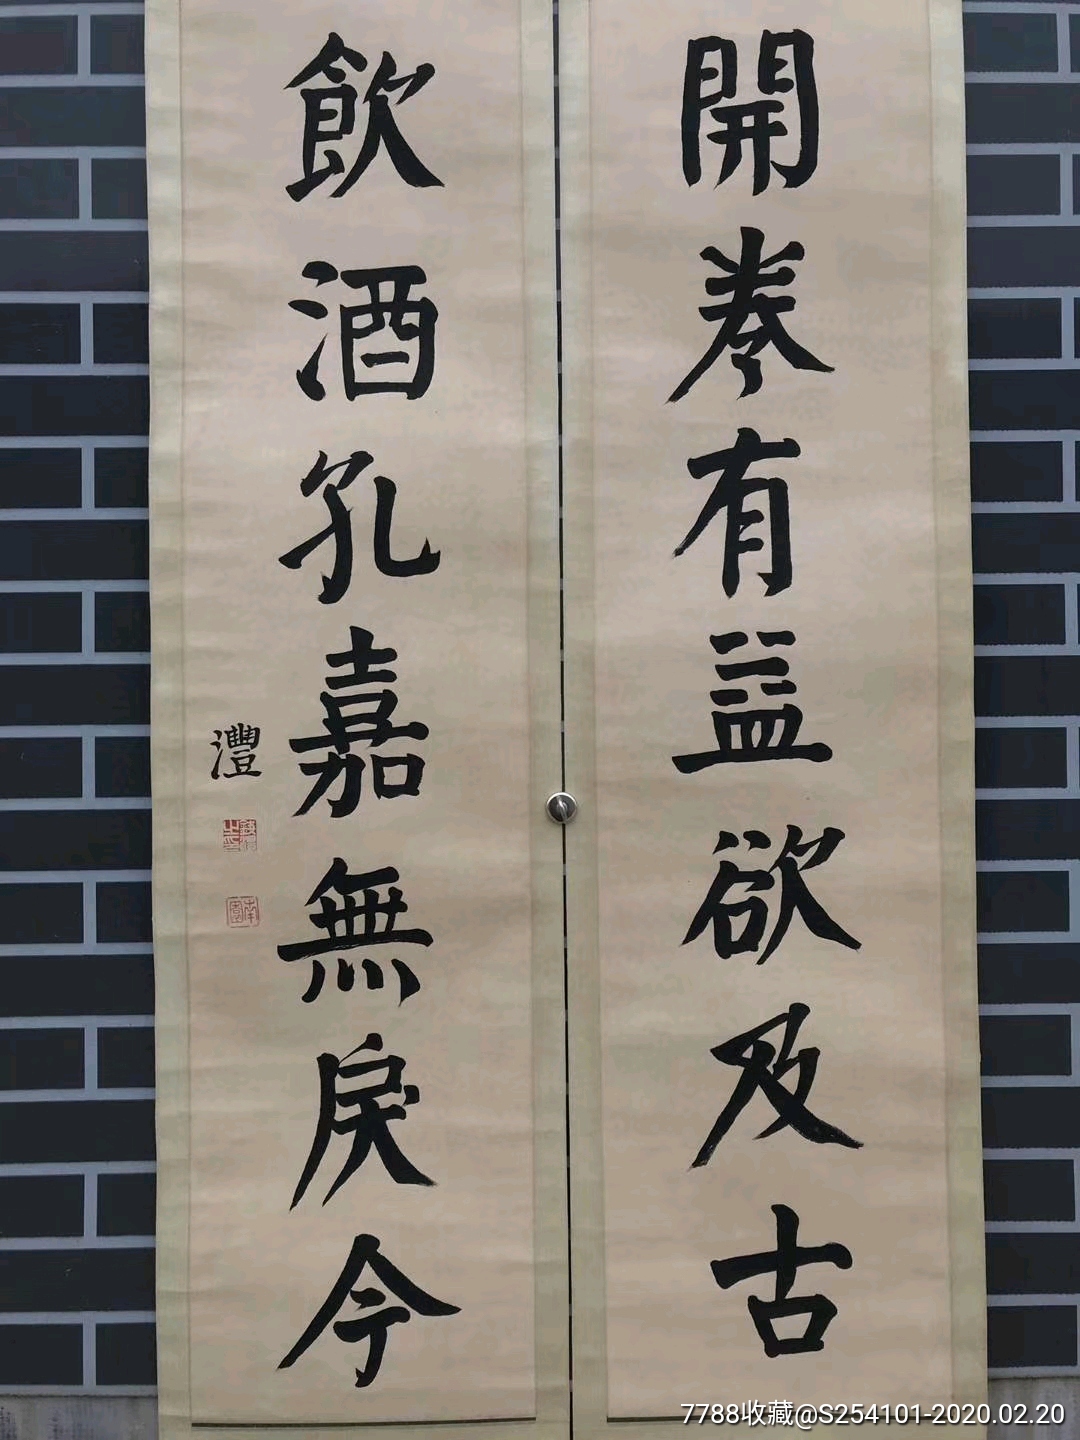 開卷有益欲及古
飲酒孔嘉無戾今
灃
7788收藏@S254101-2020.02.20